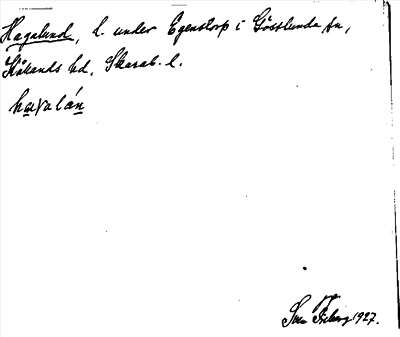 Hagalund, l. under Egenstorp i Gösslunda sn,
Kållands hd, Skarab. l.
havalán
Sven 1927.